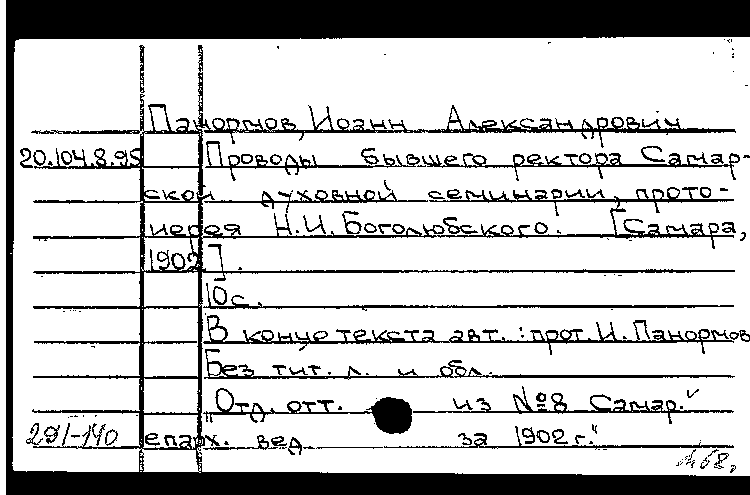 Панормов, Иоанн Александрович
20.104.8.95 Проводы бывшего ректора Самар-
ской духовной семинарии, прото-
иерея Н.И. Боголюбского. [Самара,
1902].
10с.
В конце текста авт.: прот. И. Панормов
Без тит. л. и обл.
"Отд. отт. из №8 Самар.
291-140 епарх. вед. за 1902 г."